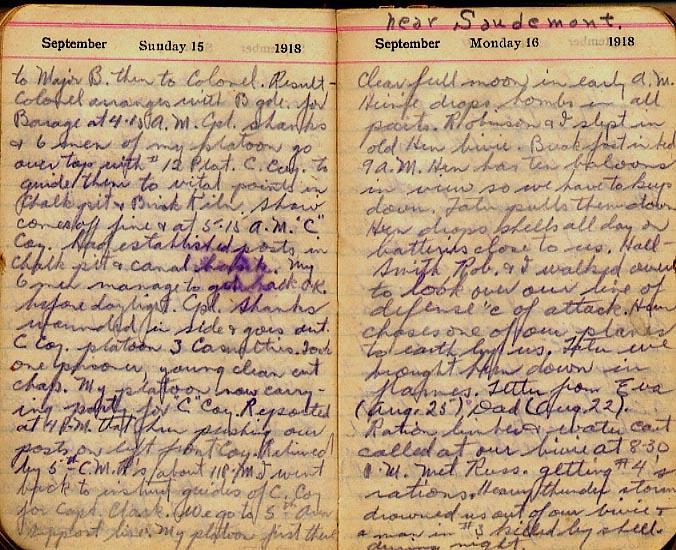 September Sunday 15 1918
to Major B. then to Colonel. Result-
Colonel arranges with B gde. for
Barage at 4.45 A.M. Cpl. Shanks
& 6 men of my platoon go
over top with #12 Plat. C. Coy. to
guide them to vital points in
Chalk pit & Brick Kiln. Show
comes off fine & at 5.15 A.M. "C"
Coy. Had established posts in
Chalk pit & canal . My
6 men manage to get back O.K.
before daylight. Cpl. Shanks
wounded in side & goes out.
C Coy. platoon 3 Casualties. Took
one prisoner, young clean cut
chap. My platoon now carry-
ing party for "C" Coy. Reported
at 4 P.M. that Hun pushing our
posts on left front Coy. Relieved
by 5th C.M.R's about 11 P.M. I went
back to instruct guides of C. Coy
for Capt. Clark. We go to 5th
support line. My platoon just there
near Saudemont.
September Monday 16 1918
Clear full moon in early A.M.
Heinie drops bombs in all
parts. Robinson & I slept in
old Hun bivie. Breakfast in bed
9 A.M. Hun has ten baloons
in view so we have to keep
down. Later pulls them down
Hun drops shells all day on
batteries close to us. Hall-
Smith Rob. & I walked over
to look over our line of
defense "c of attack. Hun
chases one of our planes
to earth by us. Later we
brought Hun down in
flames. Letter from Eva
(Aug. 25) Dad (Aug. 22).
Ration limber & water cart
called at our bivie at 8.30
P.M. Met Russ. getting #4's
rations. Heavy thunder storm
drowned us out of our bivie &
a man in #3 killed by shell
during night.